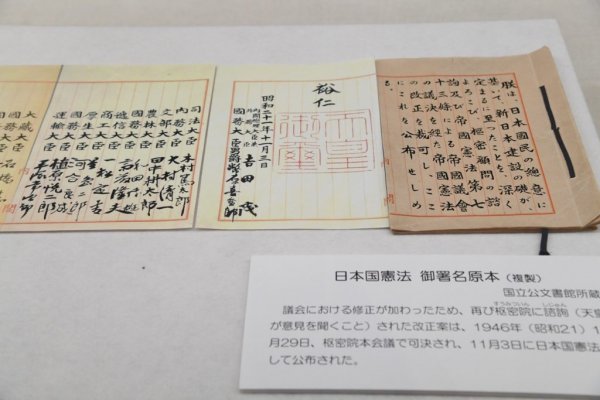 朕は、日本國民の總意に
基いて、新日本建設の礎が、
定まるに至つたことを、深く
よろこび、樞密顧問の諮
詢及び帝國憲法第七
十三條による帝國議會
の議決を経た帝國憲法
の改正を裁可し、ここ
にこれを公布せしめ
る。
内閣
裕仁
天皇御璽
昭和二十一年十一月三日
内閣總理大臣兼
外務大臣 吉田茂
國務大臣 男爵幣原喜重郎
司法大臣 木村篤太郎
内務大臣 大村清一
文部大臣 田中耕太郎
農林大臣 和田博雄
國務大臣 斎藤隆夫
遞信大臣 一松定吉
商工大臣 星島二郎
厚生大臣 河合良成
國務大臣 植原悦二郎
運輸大臣 平塚常次郎
内閣
大藏大臣
國務大臣
日本国憲法 御署名原本（複製）
国立公文書館所蔵
議会における修正が加わったため、再び枢密院に諮詢（天皇
が意見を聞くこと）された改正案は、1946年（昭和21）1
月29日、枢密院本会議で可決され、11月3日に日本国憲法
して公布された。